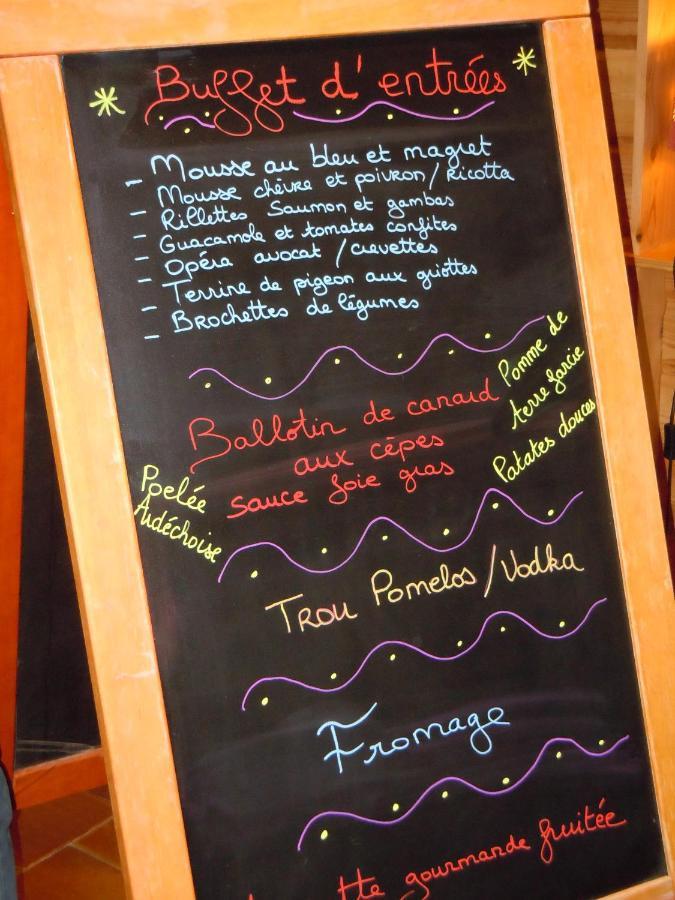 Buffet d'entrées
- Mousse au bleu et magret
- Mousse chèvre et poivron/Ricotta
- Rillettes Saumon et gambas
- Guacamole et tomates confites
- Opéra avocat / crevettes
- Terrine de pigeon aux griottes
- Brochettes de légumes
Ballotin de canard
aux cèpes
sauce foie gras
Pomme de
terre farcie
Patates douces
Poelée
Ardéchoise
Trou Pomelos/Vodka
Fromage
gourmande fruitée